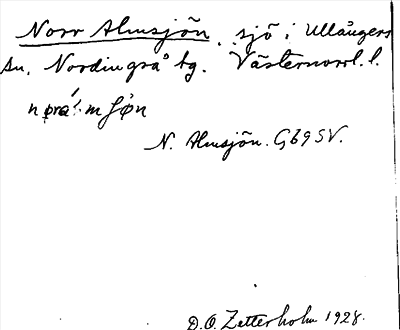 Norr Almsjön, sjö i Ullångers
sn, Nordingrå tg. Västernorrl. l.
N. Almsjön. G69SV.
D.O. Zetterholm 1928.